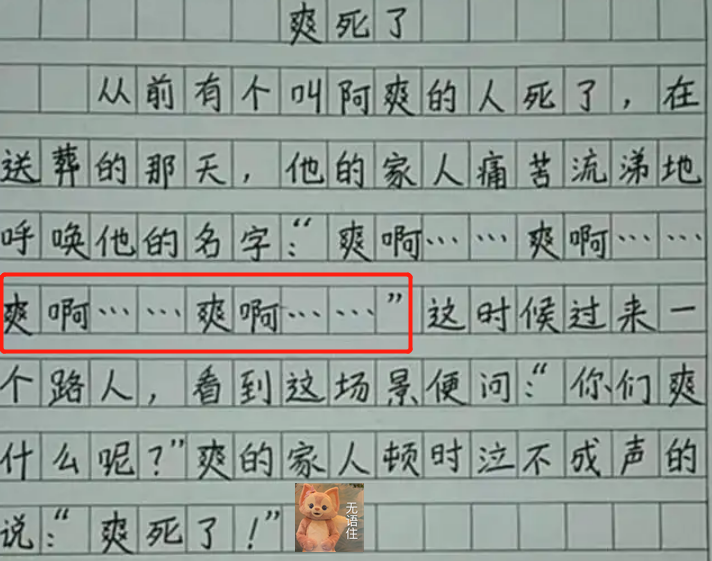 爽死了
从前有个叫阿爽的人死了，在
送葬的那天，他的家人痛苦流涕地
呼唤他的名字：“爽啊……爽啊……
爽啊……爽啊……”这时候过来一
个路人，看到这场景便问：“你们爽
什么呢？”爽的家人顿时泣不成声的
说：“爽死了！”
无语住